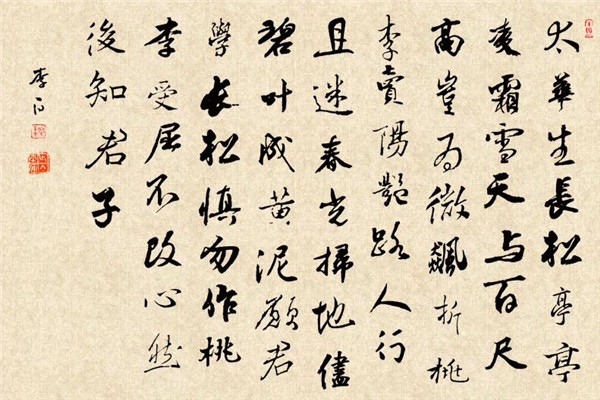 太華生長松亭亭
凌霜雪天与百尺
高豈为微飆折桃
李賣陽艷路人行
且迷春光掃地儘
碧叶成黄泥願君
學长松慎勿作桃
李受屈不改心然
後知君子
李白